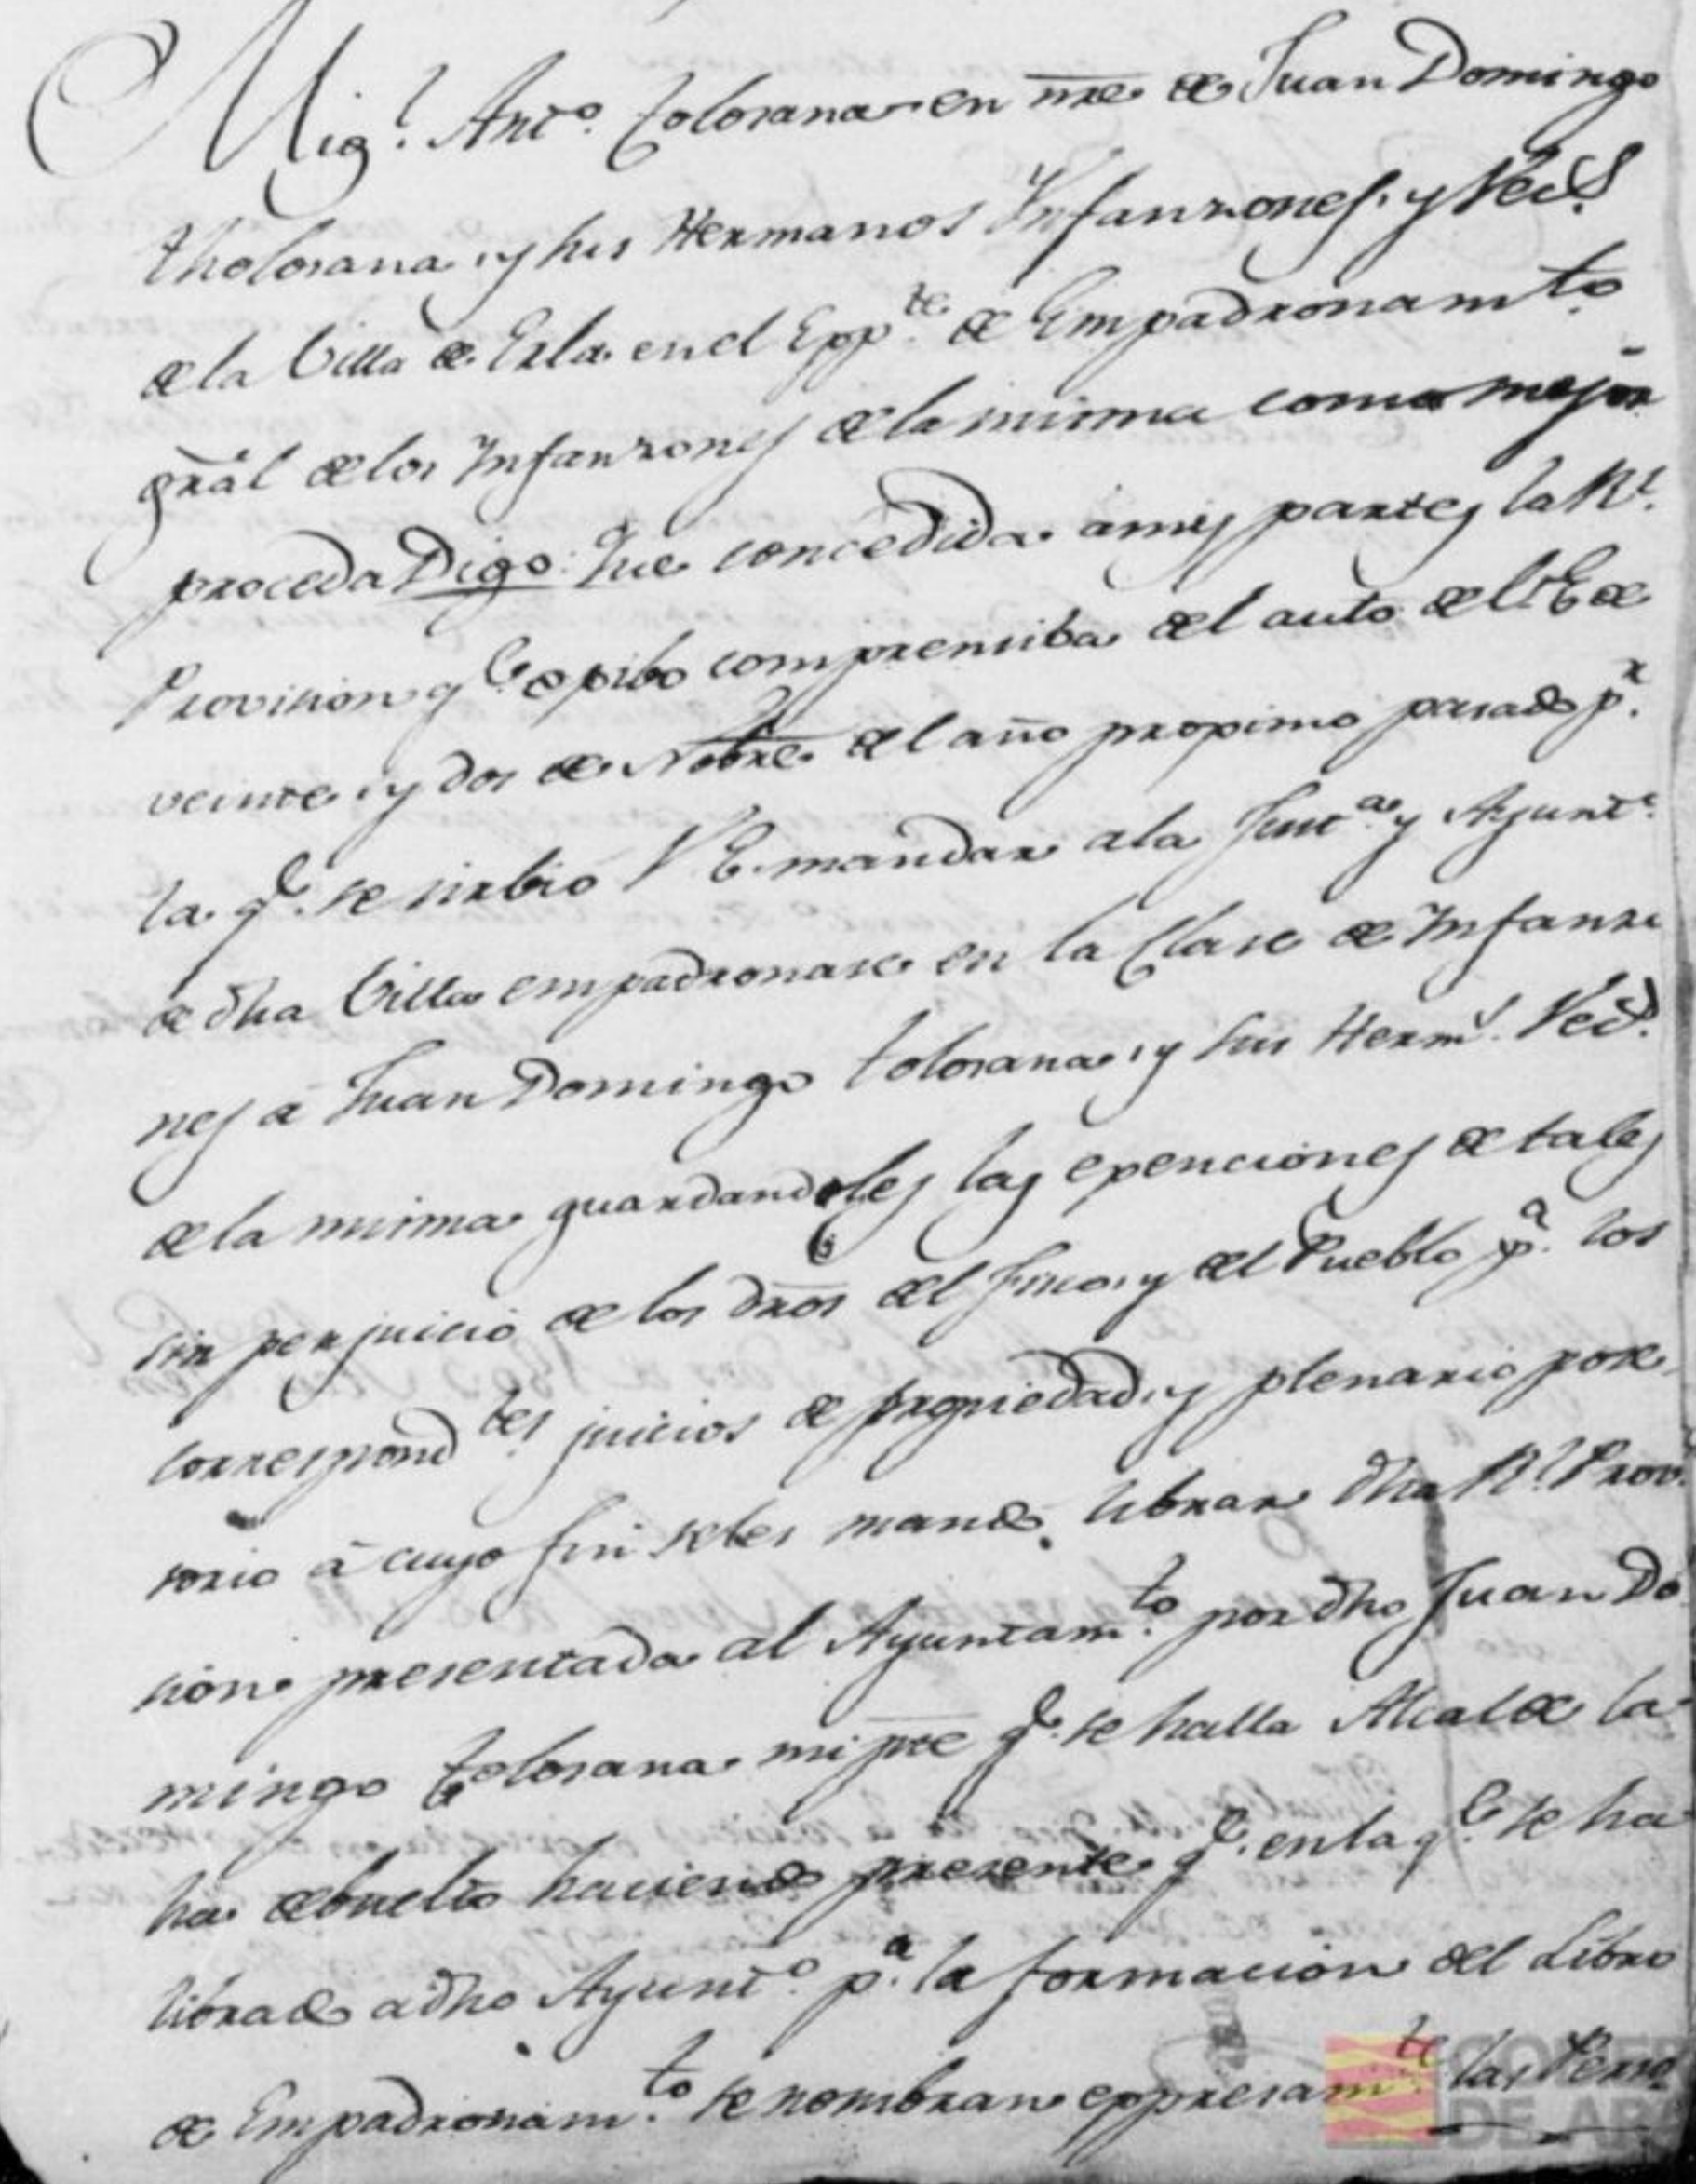 Mig.l Ant.o Tolosana en nre de Juan Domingo
tholosana, y sus Hermanos Infanzones, y Vec.s
de la Villa de Erla en el Exp.te de Empadronam.to
gral de los Infanzones de la misma como mejor
proceda Digo: Que concedida a mis partes la R.l
Provision q.e exibo comprensiba del auto de V.E de
veinte, y dos de Nobre del año proximo pasado p.r
la q.e se sirbió V E mandar a la Just.a y Ayunt.o
de dha Villa empadronase en la Clase de Infanzo
nes á Juan Domingo tolosana, y sus Herm.s Vec.s
de la misma guardandoles las exenciones de tales
sin perjuicio de los dros del fisco, y del Pueblo p.a los
correspond.tes juicios de propiedad, y plenario pose
sorio á cuyo fin se les mandó librar dha R.l Provi
sion presentada al Ayuntam.to por dho Juan Do
mingo Tolosana mi pte q.e se halla Alcalde la
ha debuelto haciendo presente q.e en la q.e se ha
librado a dho Ayunt.o p.a la formacion del Libro
de Empadronam.to se nombran expresam.te las Perso
GOBIER
DE ARA